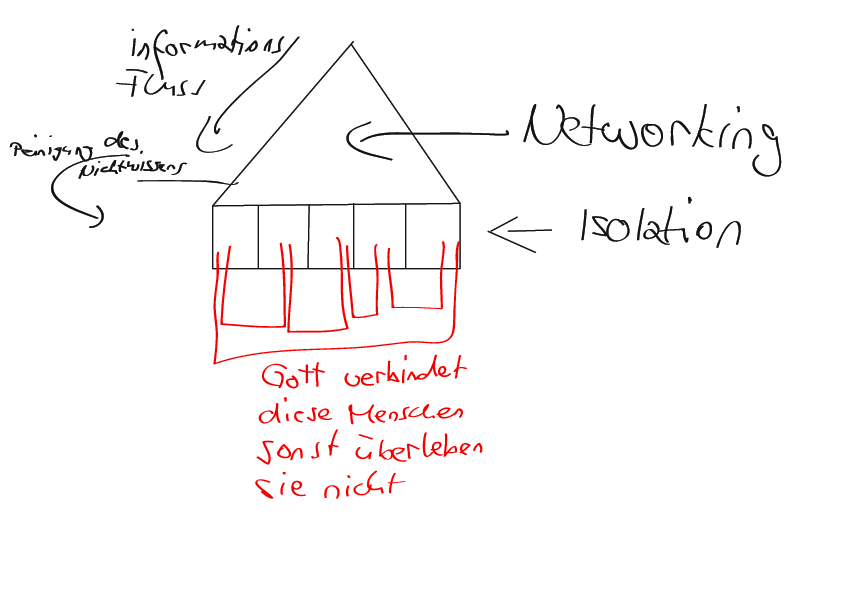 informations
Fluss
Peinigung des
Nichtwissens
Networking
Isolation
Gott verbindet
diese Menschen
sonst überleben
sie nicht